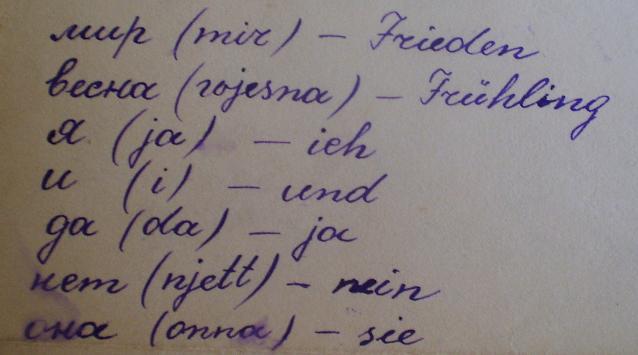 мир (mir) – Frieden
весна (wjesna) – Frühling
я (ja) – ich
и (i) – und
да (da) – ja
нет (njett) – nein
она (onna) – sie